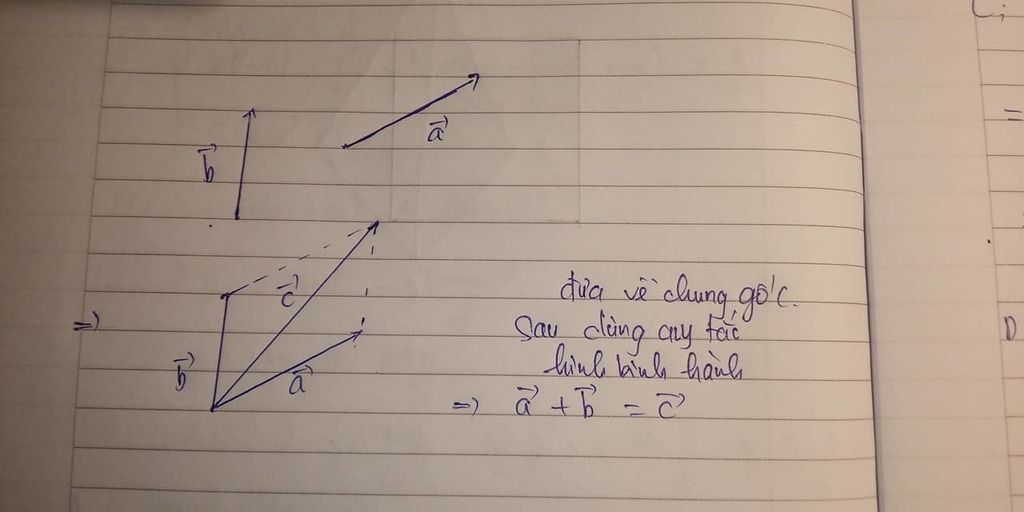 a⃗
b⃗
c⃗
đưa về chung gốc.
=)
Sau dùng quy tắc
b⃗
hình bình hành
a⃗
=) a⃗ + b⃗ = c⃗
=
D